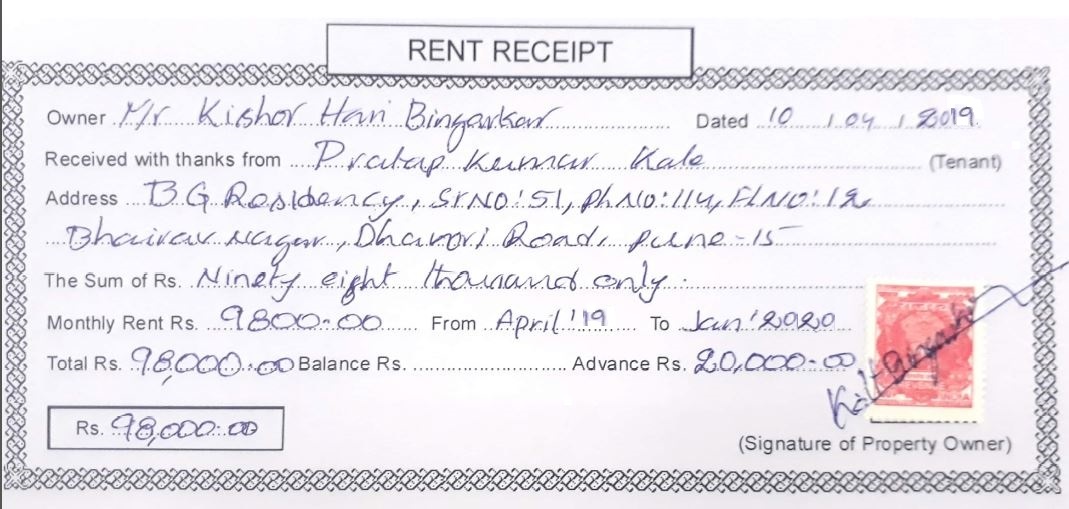 RENT RECEIPT
Owner Mr. Kishor Hari Bingarkar Dated 10 / 04 / 2019
Received with thanks from Pratap Kumar Kale (Tenant)
Address B.G Residency, Sr NO: 51, Ph NO: 114, Fl NO: 12
Bhairav Nagar, Dhanori Road, Pune-15
The Sum of Rs. Ninety eight thousand only.
Monthly Rent Rs. 9800.00 From April '19 To Jan' 2020
Total Rs. 98,000.00 Balance Rs. Advance Rs. 20,000.00
Rs. 98,000.00
(Signature of Property Owner)